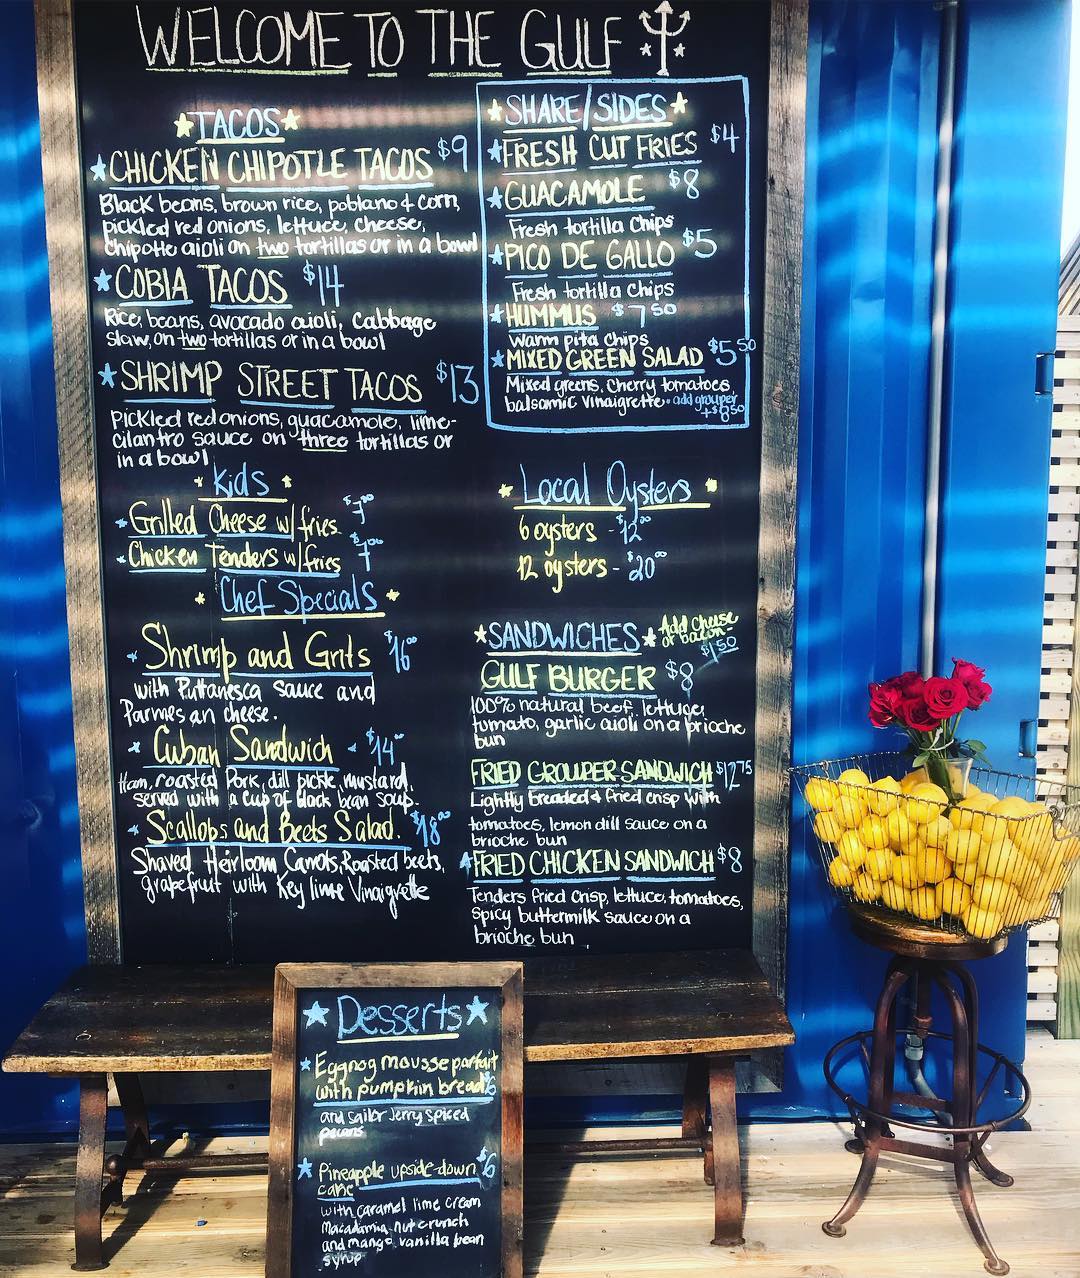 WELCOME TO THE GULF
TACOS
CHICKEN CHIPOTLE TACOS $9
Black beans, brown rice, poblano & corn,
pickled red onions, lettuce, cheese,
chipotle aioli on two tortillas or in a bowl
COBIA TACOS $14
Rice, beans, avocado aioli, Cabbage
slaw, on two tortillas or in a bowl
SHRIMP STREET TACOS $13
Pickled red onions, guacamole, lime-
cilantro sauce on three tortillas or
in a bowl
Kids
Grilled Cheese w/ fries $7.00
Chicken Tenders w/ fries $7.00
Chef Specials
Shrimp and Grits $16.00
with Puttanesca sauce and
Parmesan cheese.
Cuban Sandwich - $14.00
Ham, roasted Pork, dill pickle, mustard,
served with a cup of black bean soup.
Scallops and Beets Salad. $18.00
Shaved Heirloom Carrots, Roasted beets,
grapefruit with Key lime Vinaigrette
SHARE/SIDES
FRESH CUT FRIES $4
GUACAMOLE $8
Fresh tortilla chips
PICO DE GALLO $5
Fresh tortilla chips
HUMMUS $7.50
Warm pita chips
MIXED GREEN SALAD $5.50
Mixed greens, cherry tomatoes,
balsamic vinaigrette • add grouper
+$8.50
Local Oysters
6 oysters - $12.00
12 oysters - $20.00
SANDWICHES
Add cheese
or bacon -
$1.50
GULF BURGER $8
100% natural beef, lettuce,
tomato, garlic aioli on a brioche
bun
FRIED GROUPER SANDWICH $12.75
Lightly breaded & fried crisp with
tomatoes, lemon dill sauce on a
brioche bun
FRIED CHICKEN SANDWICH $8
Tenders fried crisp, lettuce, tomatoes,
spicy buttermilk sauce on a
brioche bun
Desserts
Eggnog mousse parfait
with pumpkin bread $6
and sailor Jerry spiced
pecans
Pineapple upside-down $6
cake
with caramel lime cream
Macadamia nut crunch
and mango vanilla bean
syrup